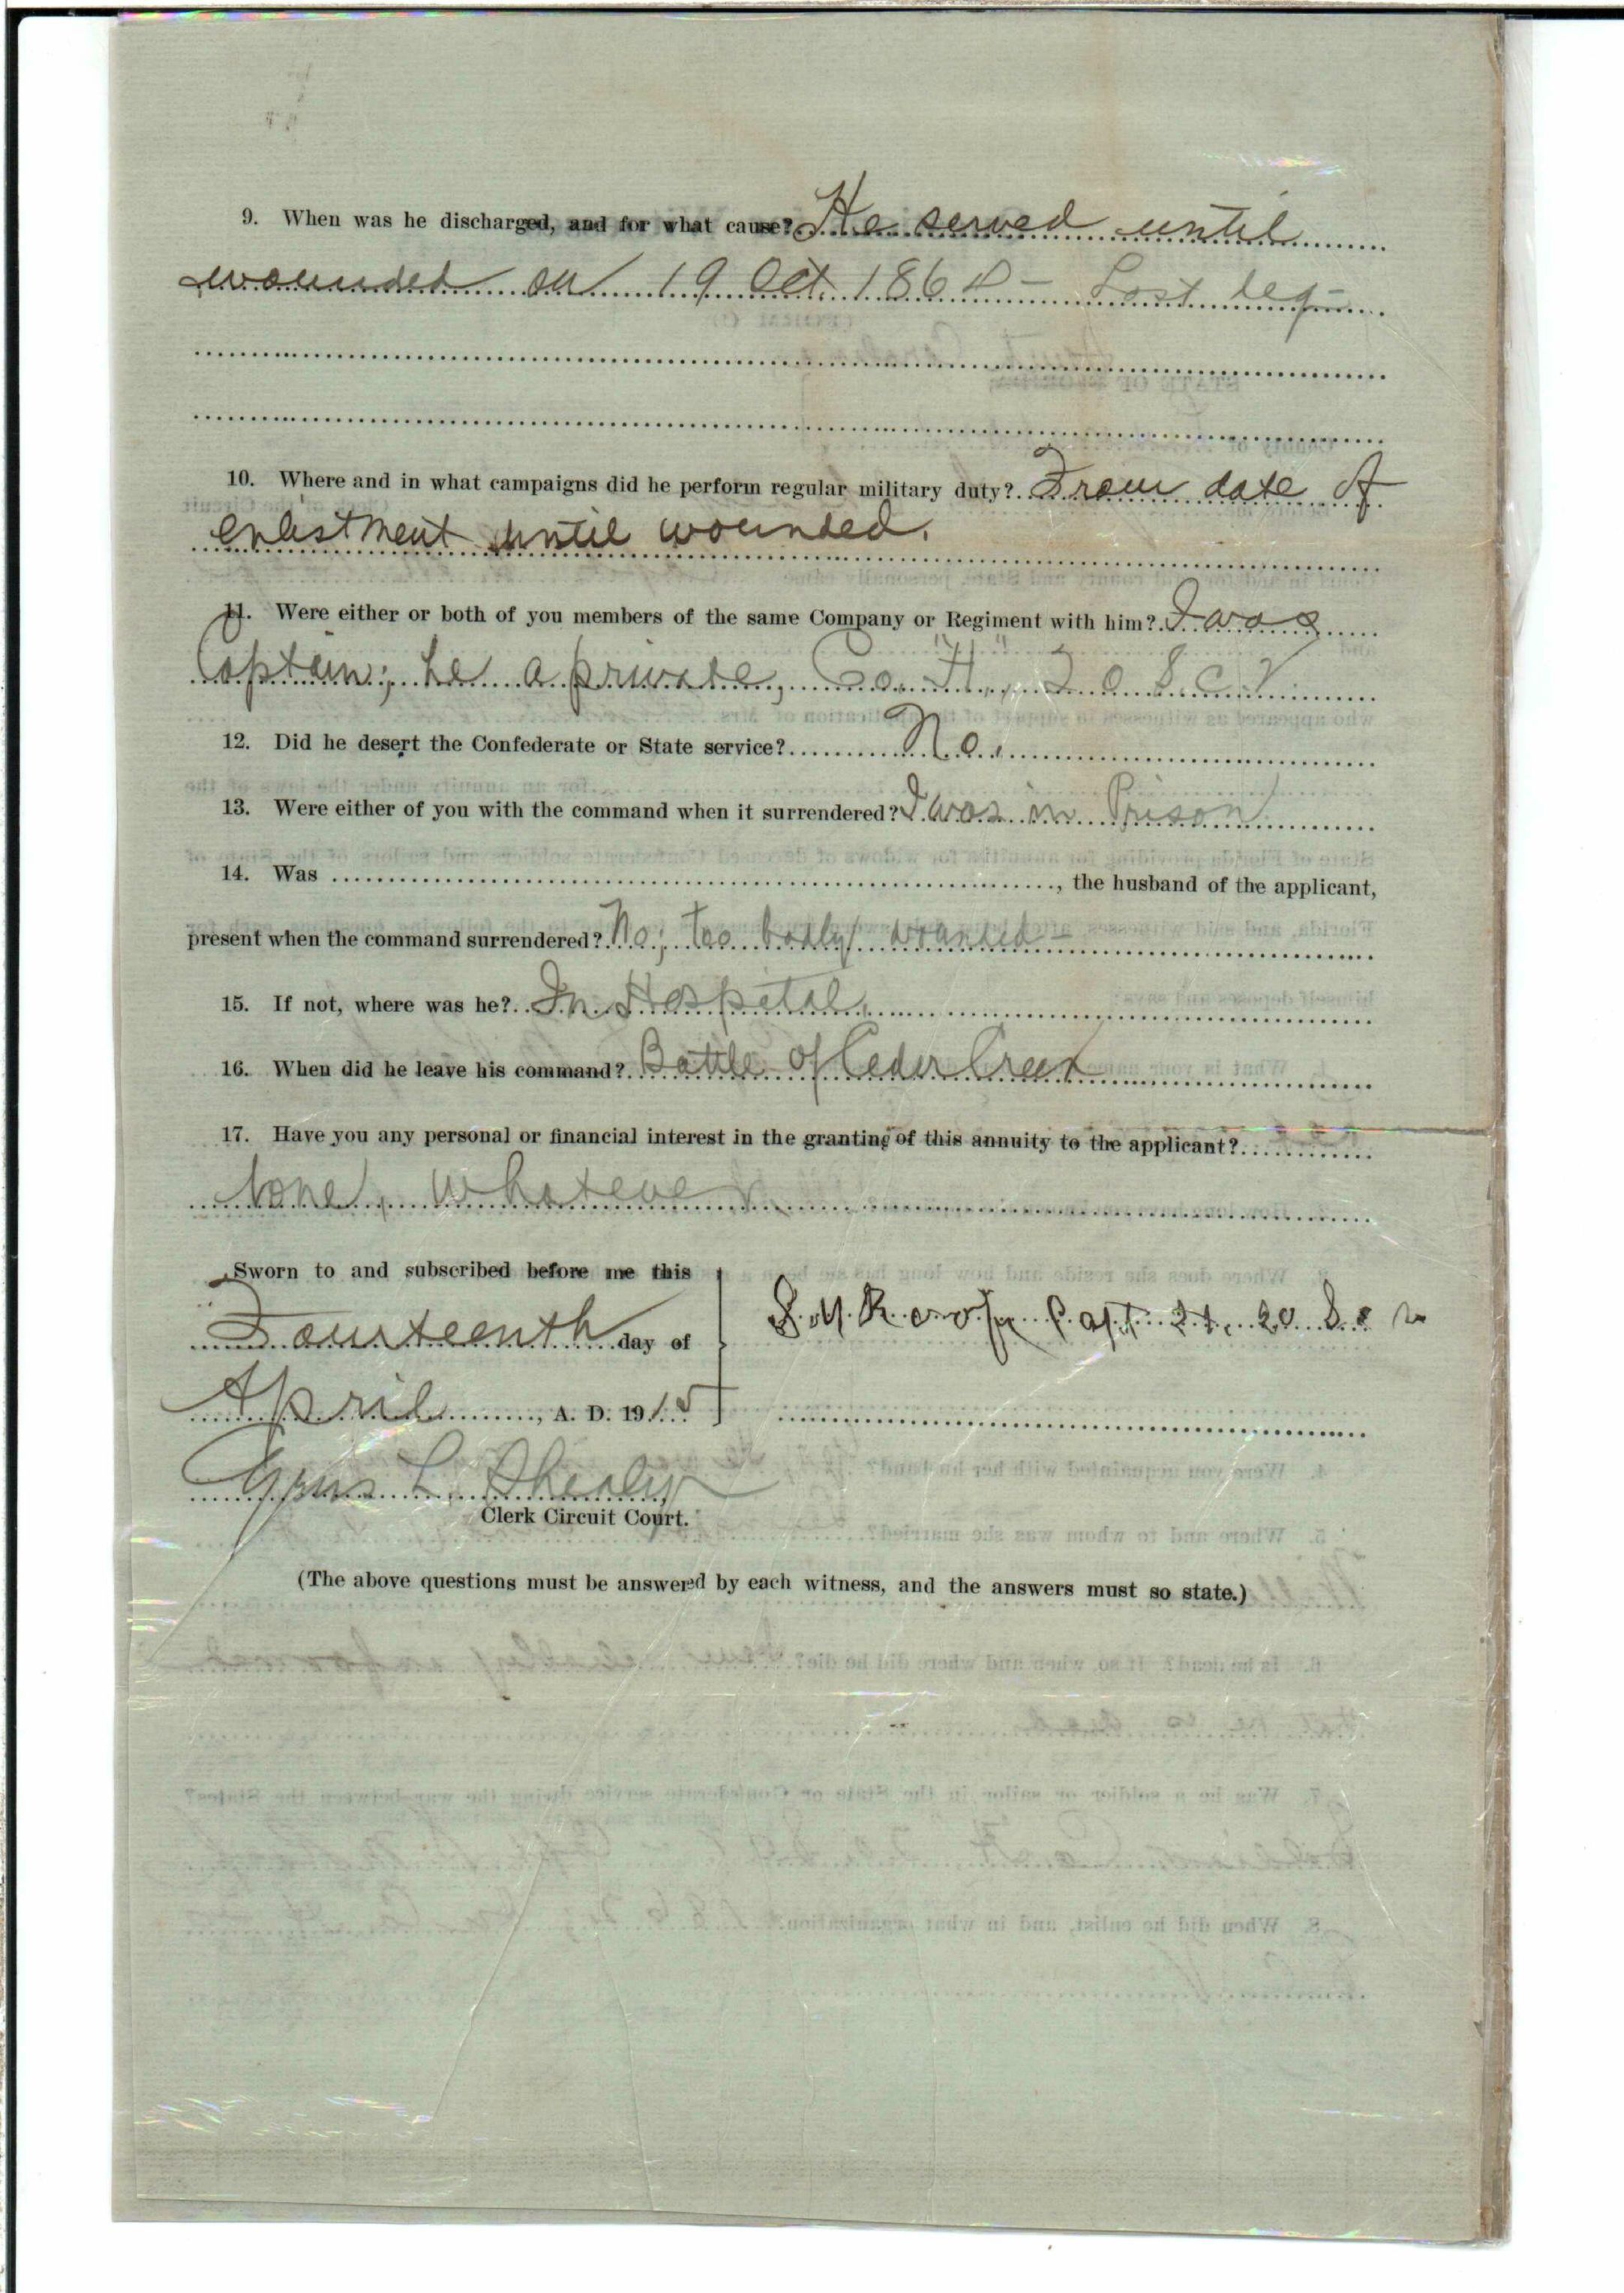 9. When was he discharged, and for what cause? He served until
wounded on 19 Oct. 1864 – Lost leg –
10. Where and in what campaigns did he perform regular military duty? From date of
enlistment until wounded.
11. Were either or both of you members of the same Company or Regiment with him? I was
Captain; he a private, Co. "H", 20 S.C.V
12. Did he desert the Confederate or State service? No.
13. Were either of you with the command when it surrendered? I was in Prison
14. Was , the husband of the applicant,
present when the command surrendered? No; too badly wounded –
15. If not, where was he? In Hospital.
16. When did he leave his command? Battle of Ceder Creek
17. Have you any personal or financial interest in the granting of this annuity to the applicant?
None, whatever
Sworn to and subscribed before me this
Fourteenth day of
April, A. D. 1915
S. M. Capt 20 S c v
L. Shealy
Clerk Circuit Court.
(The above questions must be answered by each witness, and the answers must so state.)